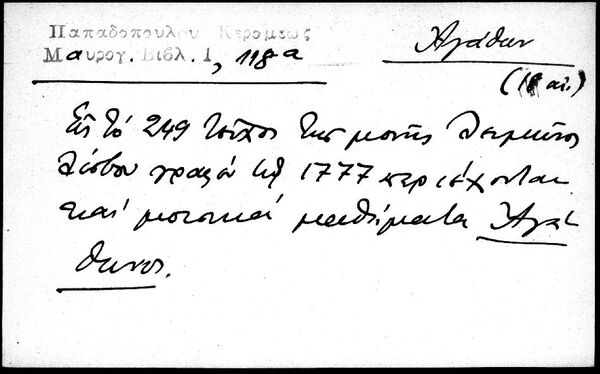 Παπαδοπούλου Κεραμέως
Μαυρογ. Βιβλ. 1, 118α
Ἀγάθων
(18 αἰ.)
Εἰς τό 249 τεῦχος τῆς μονῆς Λειμῶνος
Λέσβου γραφέν τῷ 1777 περιέχονται
καί μουσικά μαθήματα Ἀγά-
θωνος.